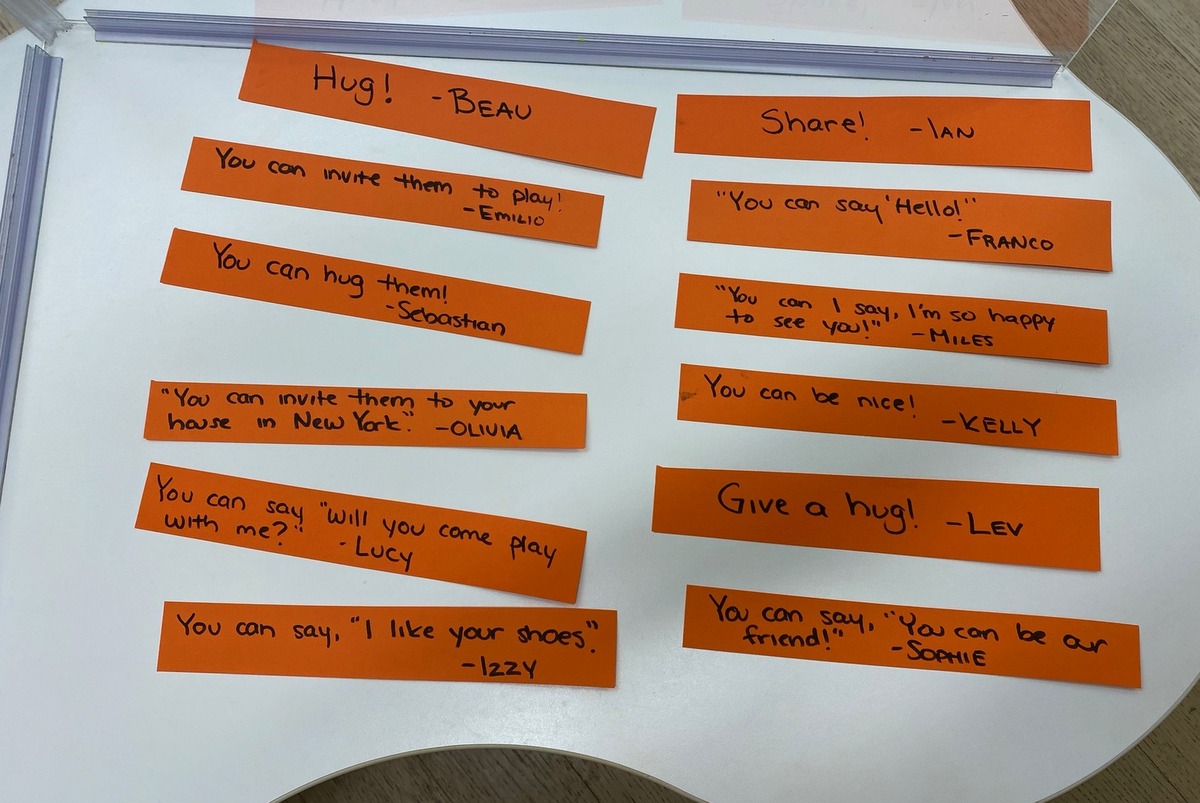 Hug! -BEAU
You can invite them to play!
-EMILIO
You can hug them!
-Sebastian
"You can invite them to your
house in New York." -OLIVIA
You can say "will you come play
with me?" -LUCY
You can say, "I like your shoes".
-IZZY
Share! -IAN
"You can say 'Hello!'"
-FRANCO
"You can I say, I'm so happy
to see you!" -MILES
You can be nice!
-KELLY
Give a hug! -LEV
You can say, "You can be our
friend!" -SOPHIE